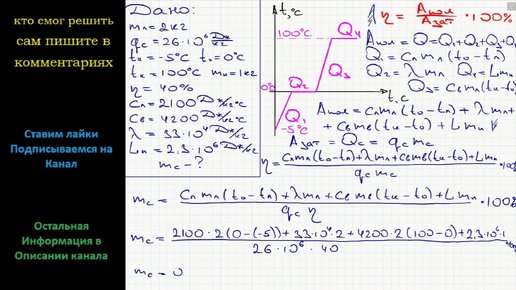 кто смог решить
сам пишите в
комментариях
Ставим лайки
Подписываемся на
Канал
Остальная
Информация в
Описании канала
Дано:
mл = 2 кг
qc = 26·10⁶ Дж/кг
tл = -5°C t₀ = 0°C
tк = 100°C mп = 1кг
η = 40%
Cл = 2100 Дж/кг°C
Cв = 4200 Дж/кг°C
λ = 33·10⁴ Дж/кг
Lп = 2,3·10⁶ Дж/кг
mc - ?
t, °C
100°C
0°C
-5°C
Q₁
Q₂
Q₃
Q₄
t, c
η = Aпол / Aзат · 100%
Aпол = Q = Q₁+Q₂+Q₃+Q₄
Q₁ = Cл mл (t₀ - tл)
Q₂ = λ mл Q₄ = L mп
Q₃ = Cв mл (tк - t₀)
Aпол = Cл mл (t₀ - tл) + λ mл +
+ Cв mл (tк - t₀) + L mп
Aзат = Qc = qc mc
η = Cл mл (t₀ - tл) + λ mл + Cв mл (tк - t₀) + L mп / qc mc
mc = Cл mл (t₀ - tл) + λ mл + Cв mл (tк - t₀) + L mп / qc η · 100%
mc = 2100·2(0-(-5)) + 33·10⁴·2 + 4200·2(100-0) + 2,3·10⁶·1 / 26·10⁶·40
mc = 0